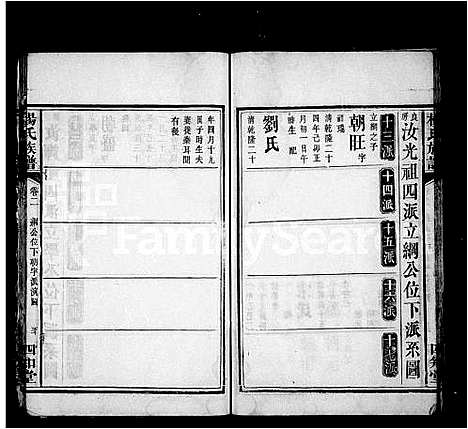 楊氏族譜
良房汝光祖四派立綱公位下派系圖
十三派
十四派
十五派
十六派
十七派
立綱之子
朝旺字
祥瑞
清乾隆二十
四年己卯正
月初一日
時生 配
劉氏
清乾隆二十
年四月十九
辰子時生夫
妻徙秦耳關
有後
楊氏族譜
卷二
綱公位下朝字派演圖
四知堂
FamilySearch